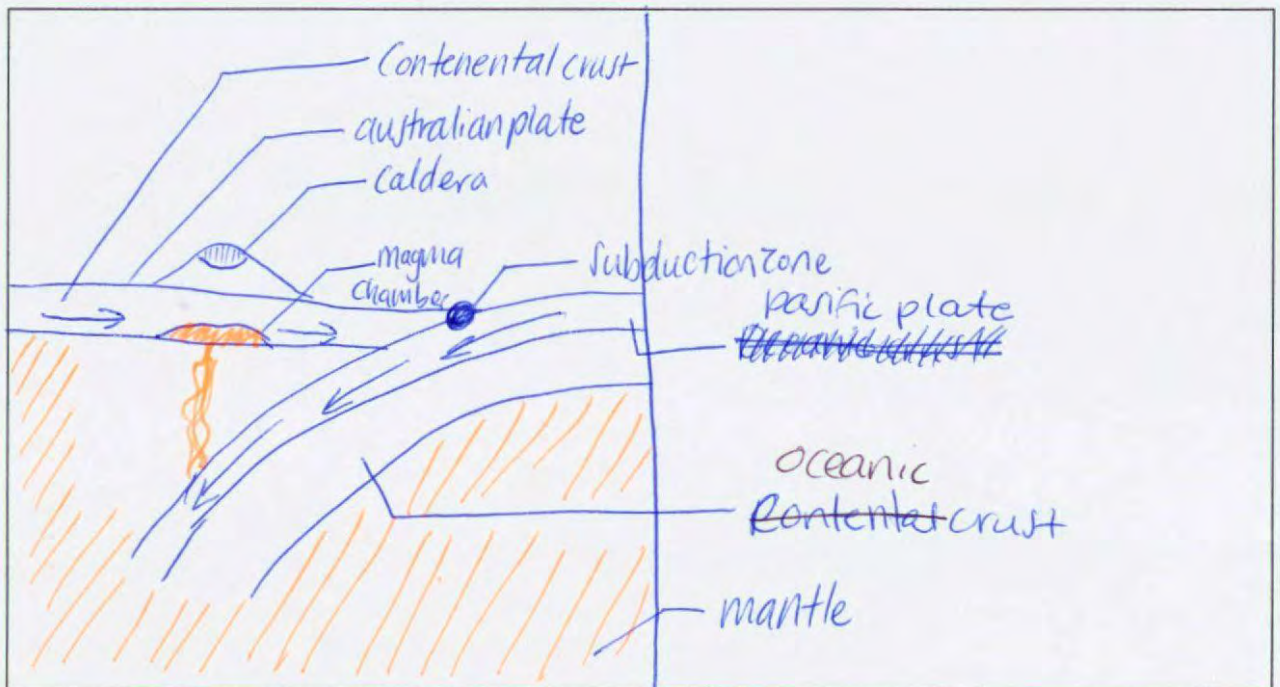 Contenental crust
australian plate
Caldera
magma
chamber
Subduction zone
pasific plate
oceanic
Contental crust
mantle